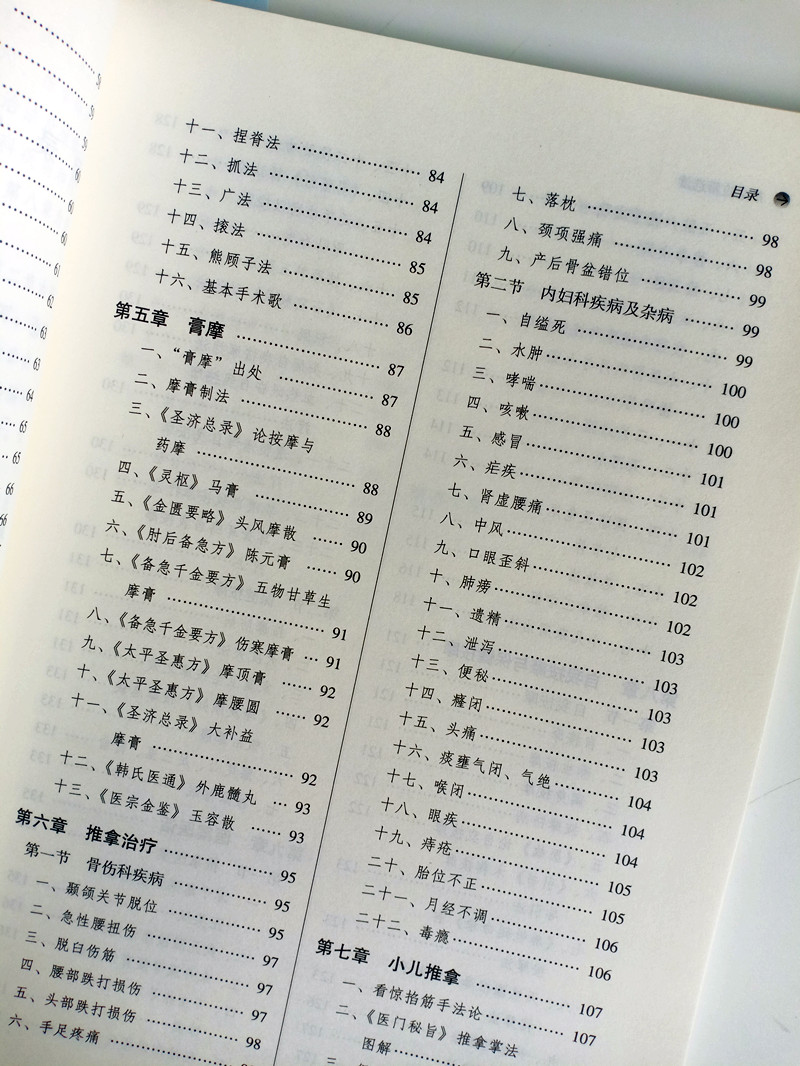 61
62
63
63
64
65
65
66
66
十一、捏脊法 …… 84
十二、抓法 …… 84
十三、广法 …… 84
十四、滚法 …… 85
十五、熊顾子法 …… 85
十六、基本手术歌 …… 86
第五章 膏摩 …… 87
一、“膏摩”出处 …… 87
二、摩膏制法 …… 88
三、《圣济总录》论按摩与
药摩 …… 88
四、《灵枢》马膏 …… 89
五、《金匮要略》头风摩散 …… 90
六、《肘后备急方》陈元膏 …… 90
七、《备急千金要方》五物甘草生
摩膏 …… 91
八、《备急千金要方》伤寒摩膏 … 91
九、《太平圣惠方》摩顶膏 …… 92
十、《太平圣惠方》摩腰圆 …… 92
十一、《圣济总录》大补益
摩膏 …… 92
十二、《韩氏医通》外鹿髓丸 … 93
十三、《医宗金鉴》玉容散 …… 93
第六章 推拿治疗 …… 95
第一节 骨伤科疾病 …… 95
一、颞颌关节脱位 …… 95
二、急性腰扭伤 …… 97
三、脱臼伤筋 …… 97
四、腰部跌打损伤 …… 97
五、头部跌打损伤 …… 98
六、手足疼痛 ……
目录
七、落枕 …… 98
八、颈项强痛 …… 98
九、产后骨盆错位 …… 99
第二节 内妇科疾病及杂病 …… 99
一、自缢死 …… 99
二、水肿 …… 100
三、哮喘 …… 100
四、咳嗽 …… 100
五、感冒 …… 101
六、疟疾 …… 101
七、肾虚腰痛 …… 101
八、中风 …… 102
九、口眼歪斜 …… 102
十、肺痨 …… 102
十一、遗精 …… 103
十二、泄泻 …… 103
十三、便秘 …… 103
十四、癃闭 …… 103
十五、头痛 …… 103
十六、痰壅气闭、气绝 …… 104
十七、喉闭 …… 104
十八、眼疾 …… 104
十九、痔疮 …… 105
二十、胎位不正 …… 105
二十一、月经不调 …… 106
二十二、毒瘾 …… 106
第七章 小儿推拿 …… 107
一、看惊掐筋手法论 …… 107
二、《医门秘旨》推拿掌法
图解 ……